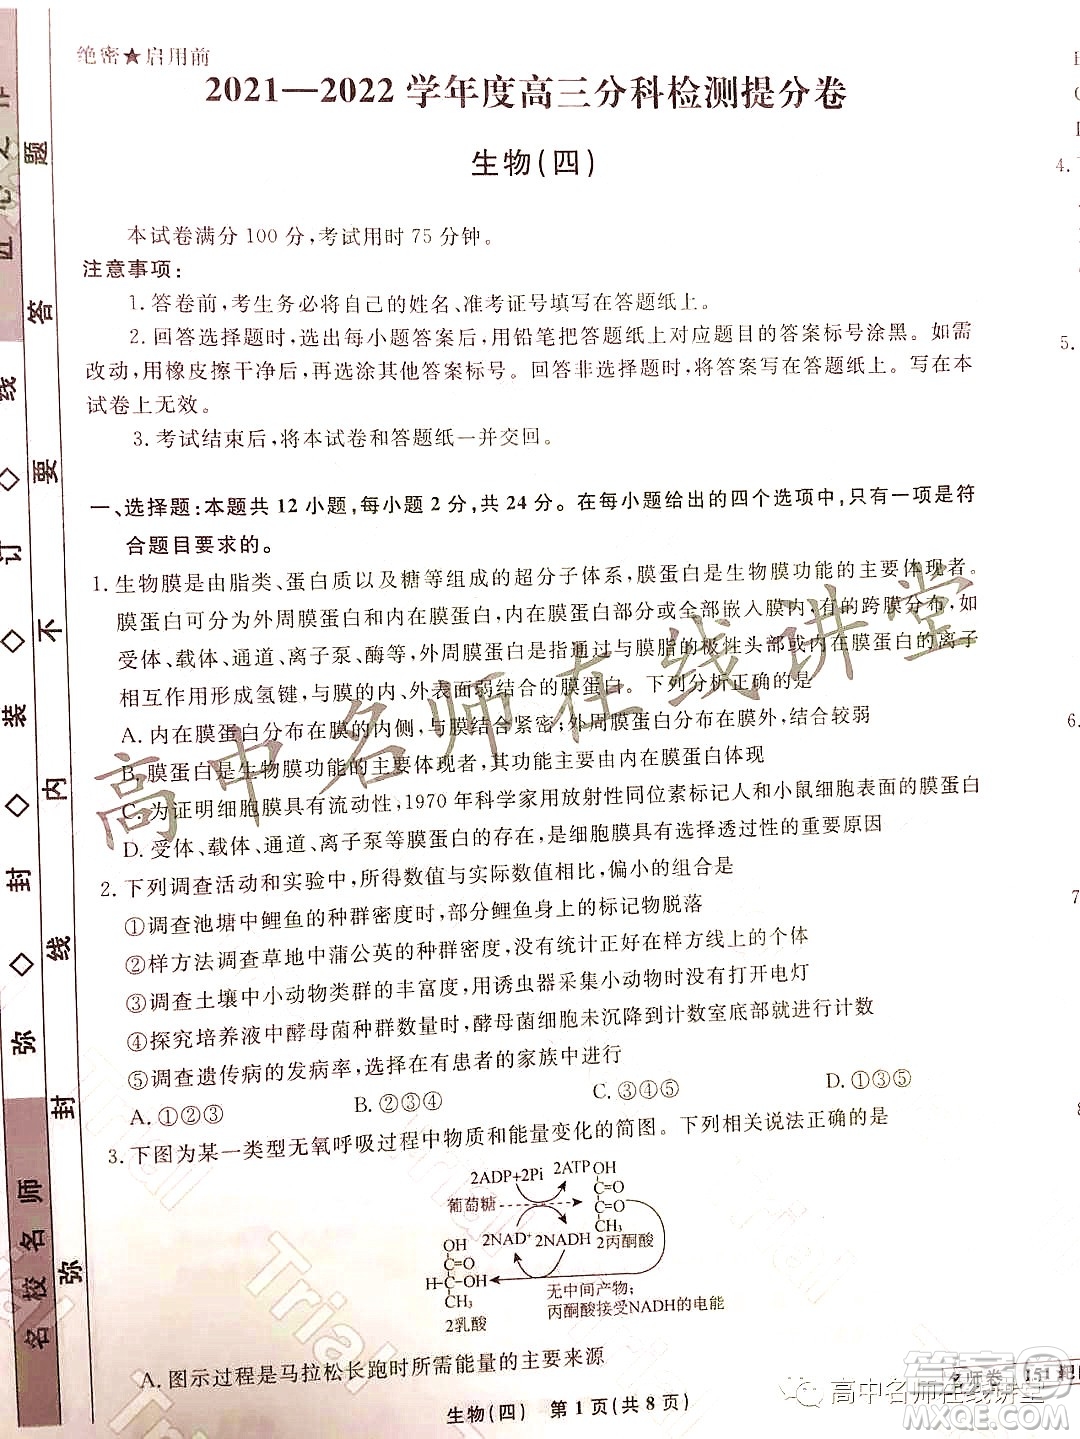 绝密★启用前
2021—2022 学年度高三分科检测提分卷
生物(四)
本试卷满分 100 分,考试用时 75 分钟。
注意事项:
1. 答卷前,考生务必将自己的姓名、准考证号填写在答题纸上。
2. 回答选择题时,选出每小题答案后,用铅笔把答题纸上对应题目的答案标号涂黑。如需
改动,用橡皮擦干净后,再选涂其他答案标号。回答非选择题时,将答案写在答题纸上。写在本
试卷上无效。
3. 考试结束后,将本试卷和答题纸一并交回。
一、选择题:本题共 12 小题,每小题 2 分,共 24 分。在每小题给出的四个选项中,只有一项是符
合题目要求的。
1. 生物膜是由脂类、蛋白质以及糖等组成的超分子体系,膜蛋白是生物膜功能的主要体现者。
膜蛋白可分为外周膜蛋白和内在膜蛋白,内在膜蛋白部分或全部嵌入膜内,有的跨膜分布,如
受体、载体、通道、离子泵、酶等,外周膜蛋白是通过与膜脂的极性头部或内在膜蛋白的离子
相互作用形成氢键,与膜的内、外表面弱结合的膜蛋白。下列分析正确的是
A. 内在膜蛋白分布在膜的内侧,与膜结合紧密;外周膜蛋白分布在膜外,结合较弱
B. 膜蛋白是生物膜功能的主要体现者,其功能主要由内在膜蛋白体现
C. 为证明细胞膜具有流动性,1970 年科学家用放射性同位素标记人和小鼠细胞的膜蛋白
D. 受体、载体、通道、离子泵等膜蛋白的存在,是细胞膜具有选择透过性的重要原因
2. 下列调查活动和实验中,所得数值与实际数值相比,偏小的组合是
①调查池塘中鲤鱼的种群密度时,部分鲤鱼身上的标记物脱落
②样方法调查草地中蒲公英的种群密度,没有统计正好在样方线上的个体
③调查土壤中小动物类群的丰富度,用诱虫器采集小动物时没有打开电灯
④探究培养液中酵母菌种群数量时,酵母菌细胞未沉降到计数室底部就进行计数
⑤调查遗传病的发病率时,在有患者的家族中进行
A. ①②③ B. ②③④ C. ③④⑤ D. ①②⑤
3. 下图为某一类型无氧呼吸过程中物质和能量变化的简图。下列相关说法正确的是
2ADP+2Pi 2ATP OH
C=O
葡萄糖 C=O
CH₃
2NAD⁺ 2NADH 2丙酮酸
OH
C=O
H-C-OH
CH₃
2乳酸
无中间产物;
丙酮酸接受NADH的电能
A. 图示过程是马拉松长跑时所需能量的主要来源
生物(四) 第 1 页(共 8 页)
高中名师在线讲堂
高中名师在线讲堂
名师卷
MXQE.COM
答 题
弥 封 线 内 不 要
弥 ◇ 封 ◇ 装 ◇ 订 ◇ 线
名 校 名 师
4.
5.
6.
7
Trial